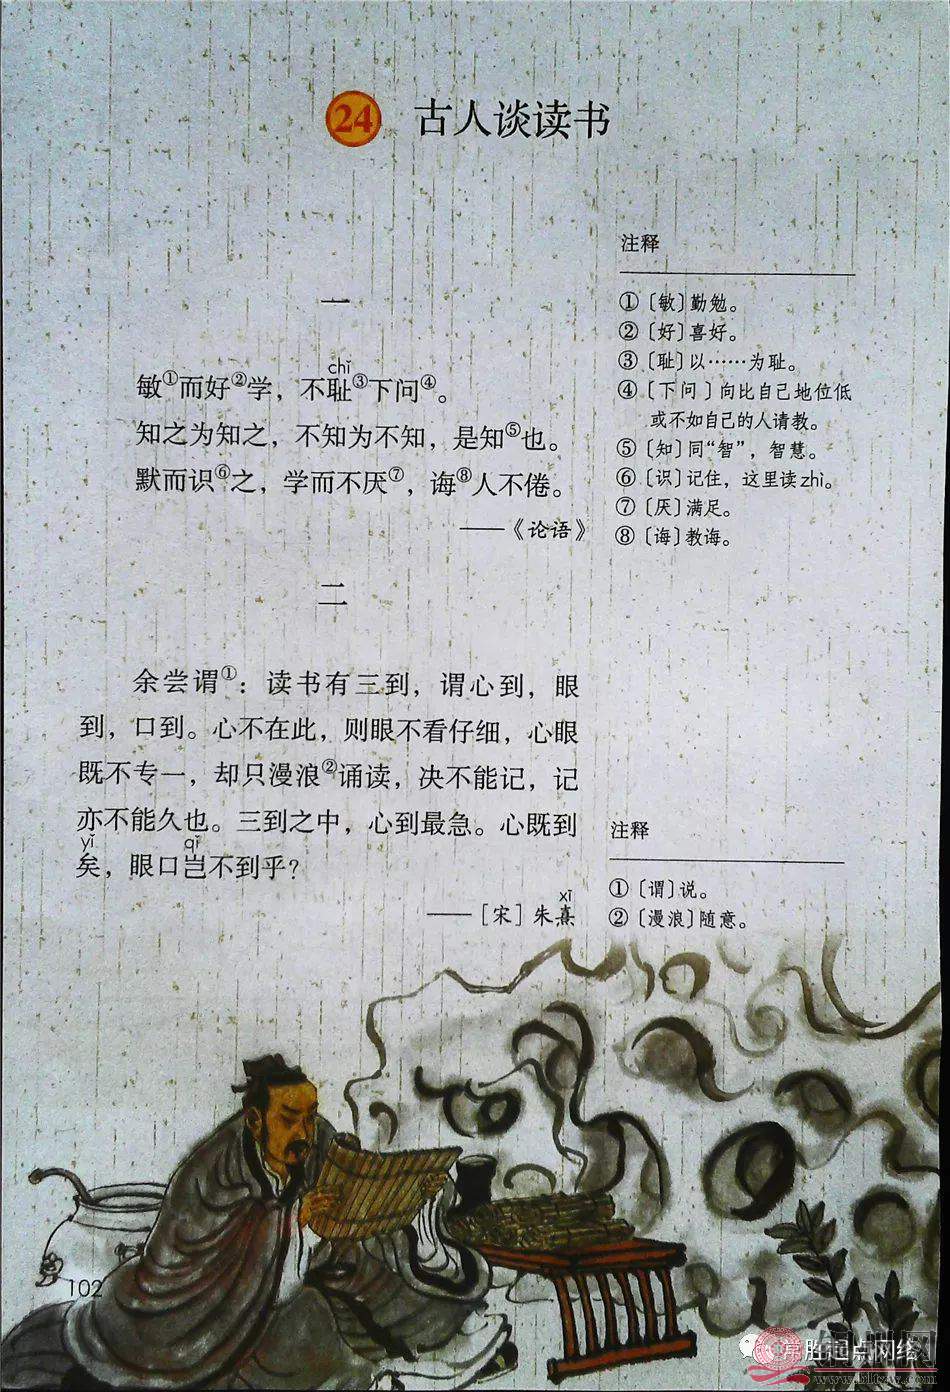 24 古人谈读书
一
chǐ
敏①而好②学，不耻③下问④。
知之为知之，不知为不知，是知⑤也。
默而识⑥之，学而不厌⑦，诲⑧人不倦。
——《论语》
注释
①〔敏〕勤勉。
②〔好〕喜好。
③〔耻〕以……为耻。
④〔下问〕向比自己地位低
或不如自己的人请教。
⑤〔知〕同“智”，智慧。
⑥〔识〕记住，这里读zhì。
⑦〔厌〕满足。
⑧〔诲〕教诲。
二
余尝谓①：读书有三到，谓心到，眼
到，口到。心不在此，则眼不看仔细，心眼
既不专一，却只漫浪②诵读，决不能记，记
亦不能久也。三到之中，心到最急。心既到
yǐ qǐ
矣，眼口岂不到乎？
xī
——［宋］朱熹
注释
①〔谓〕说。
②〔漫浪〕随意。
102
常胜起点网络